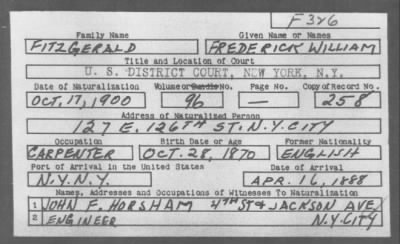 F326
Family Name Given Name or Names
FITZGERALD FREDERICK WILLIAM
Title and Location of Court
U. S. DISTRICT COURT, NEW YORK, N.Y.
Date of Naturalization Volume or Bundle No. Page No. Copy of Record No.
OCT. 17, 1900 96 — 258
Address of Naturalized Person
127 E. 126TH ST. N.Y. CITY
Occupation Birth Date or Age Former Nationality
CARPENTER OCT. 28, 1870 ENGLISH
Port of Arrival in the United States Date of Arrival
N.Y. N.Y. APR. 16, 1888
Names, Addresses and Occupations of Witnesses To Naturalization
1 JOHN F. HORSHAM 4TH ST & JACKSON AVE
2 ENGINEER N.Y. CITY